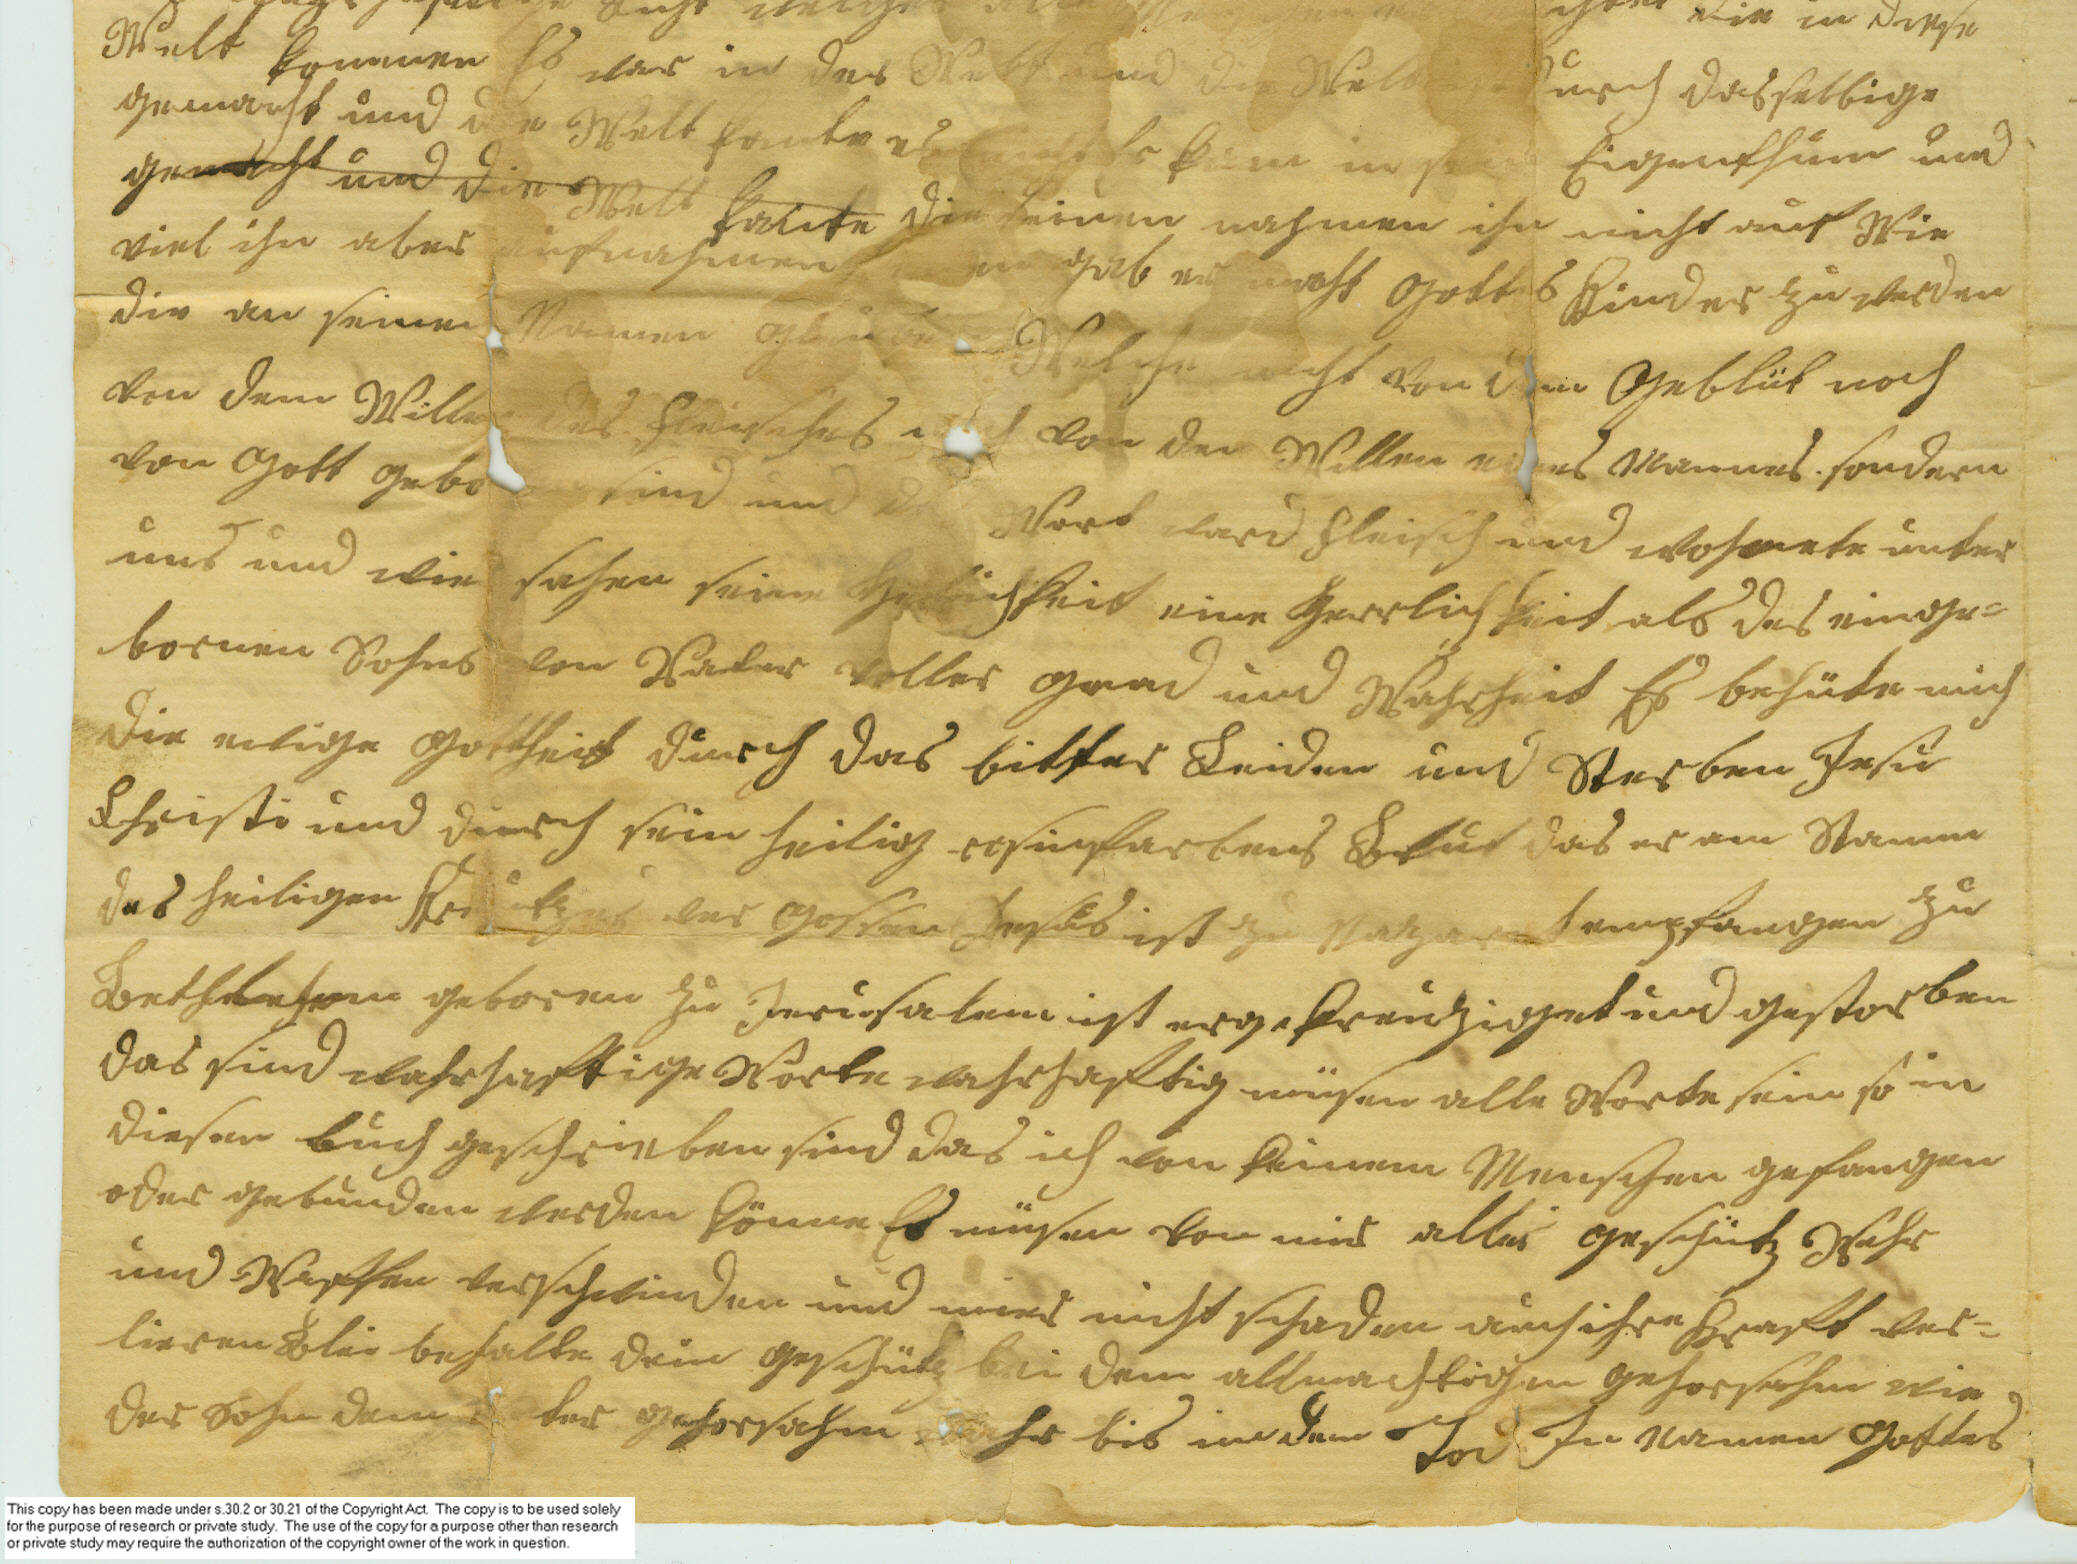 wahrhaftige Licht welches alle Menschen die in diese
Welt kommen Es war in der Welt und die Welt ist durch dasselbige
gemacht und die Welt kante es nicht Er kam in sein Eigenthum und
gemacht und die Welt kante die seinen nahmen ihn nicht auf Wie
viel ihn aber aufnahmen gab er macht Gottes Kinder zu werden
die an seinen Namen Welche nicht von dem Geblüt noch
von dem Willen des Fleisches noch von den Willen eines Mannes. sondern
von Gott gebo sind und das Wort ward Fleisch und wohnete unter
uns und wie sahen seine Herlichkeit eine Herrlichkeit als des einge=
bornen Sohns von Vater voller gnad und Wahrheit Es behüte mich
die ewige Gottheit durch das bitter Leiden und Sterben Jesu
Christi und durch sein heilig rosinfarbens Blut das er am Stamm
des heiligen Kreutzes ver gossen Jesus ist zu Nazaret empfangen zu
Bethlehem geboren zu Jerusalem ist er gekreuziget und gestorben
das sind wahrhaftige Worte wahrhaftig müsen alle Worte sein so in
diesen buch geschrieben sind das ich von keinem Menschen gefangen
oder gebunden werden könne Es müsen von mir alles geschütz Wehr
und Waffen verschwinden und mier nicht schaden auch ihre Kraft ver=
lieren Blei behalte dein geschütz bei dem allmachtigen gehorsahm wie
der Sohn dem Vater gehorsahm wahr bis in dem Tod In Namen Gottes
This copy has been made under s.30.2 or 30.21 of the Copyright Act. The copy is to be used solely
for the purpose of research or private study. The use of the copy for a purpose other than research
or private study may require the authorization of the copyright owner of the work in question.